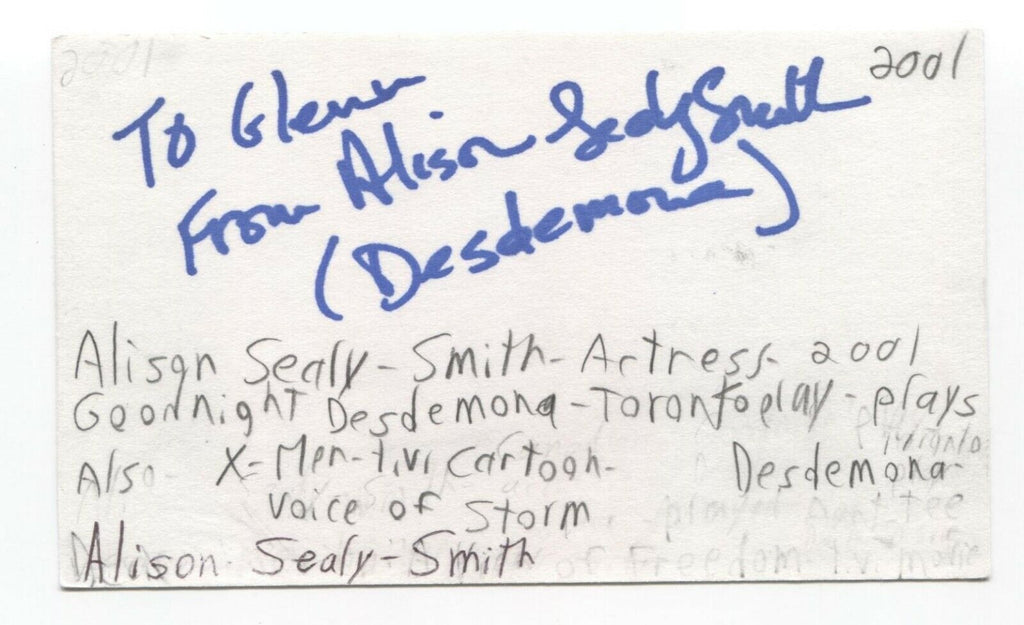 2001 2001
To Glenn
From Alison Sealy Smith
(Desdemona)
Alison Sealy-Smith-Actress- 2001
Goodnight Desdemona-Toronto play-plays
Also- X-Men-t.v. cartoon- Desdemona-
Voice of Storm
played Aunt Tee
Alison Sealy-Smith
of Freedom t.v. movie